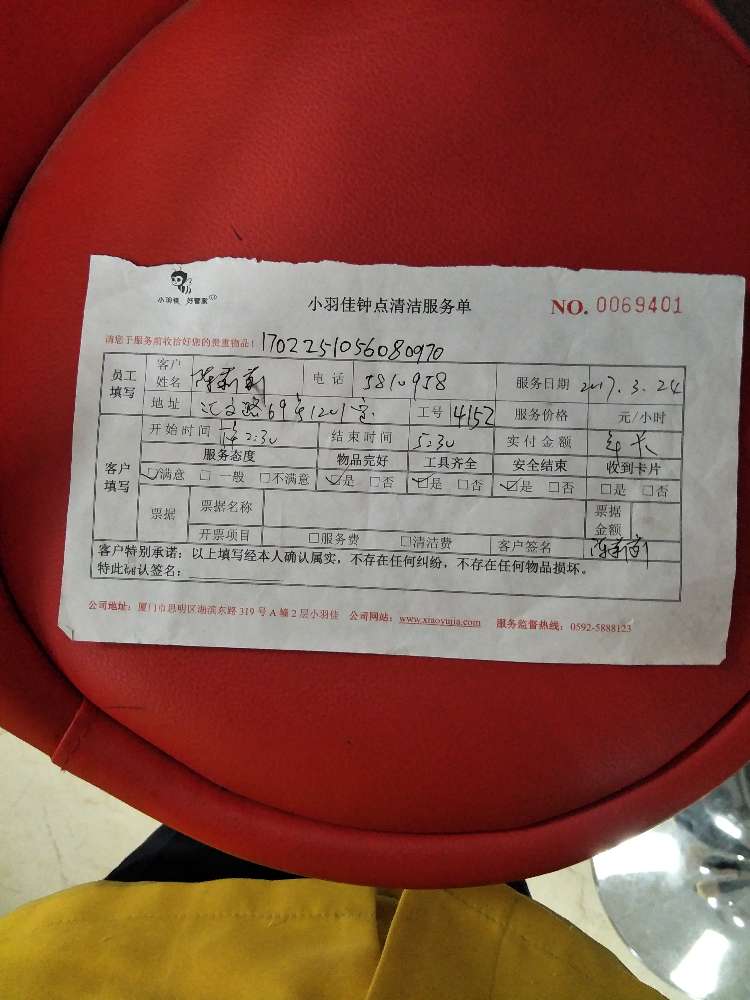 小羽佳 好管家
小羽佳钟点清洁服务单 NO. 0069401
请您于服务前收拾好您的贵重物品! 1702251056080970
员工填写 客户姓名 陈 电话 5810958 服务日期 2017.3.24
地址 69号1201室 工号 4152 服务价格 元/小时
客户填写 开始时间 2:30 结束时间 5:30 实付金额 年卡
服务态度 物品完好 工具齐全 安全结束 收到卡片
☑满意 □一般 □不满意 ☑是 □否 ☑是 □否 ☑是 □否 □是 □否
票据 票据名称 票据金额
开票项目 □服务费 □清洁费 客户签名 陈
客户特别承诺:以上填写经本人确认属实,不存在任何纠纷,不存在任何物品损坏。
特此确认签名:
公司地址:厦门市思明区湖滨东路 319 号 A 幢 2 层小羽佳 公司网站:www.xiaoyujia.com 服务监督热线:0592-5888123